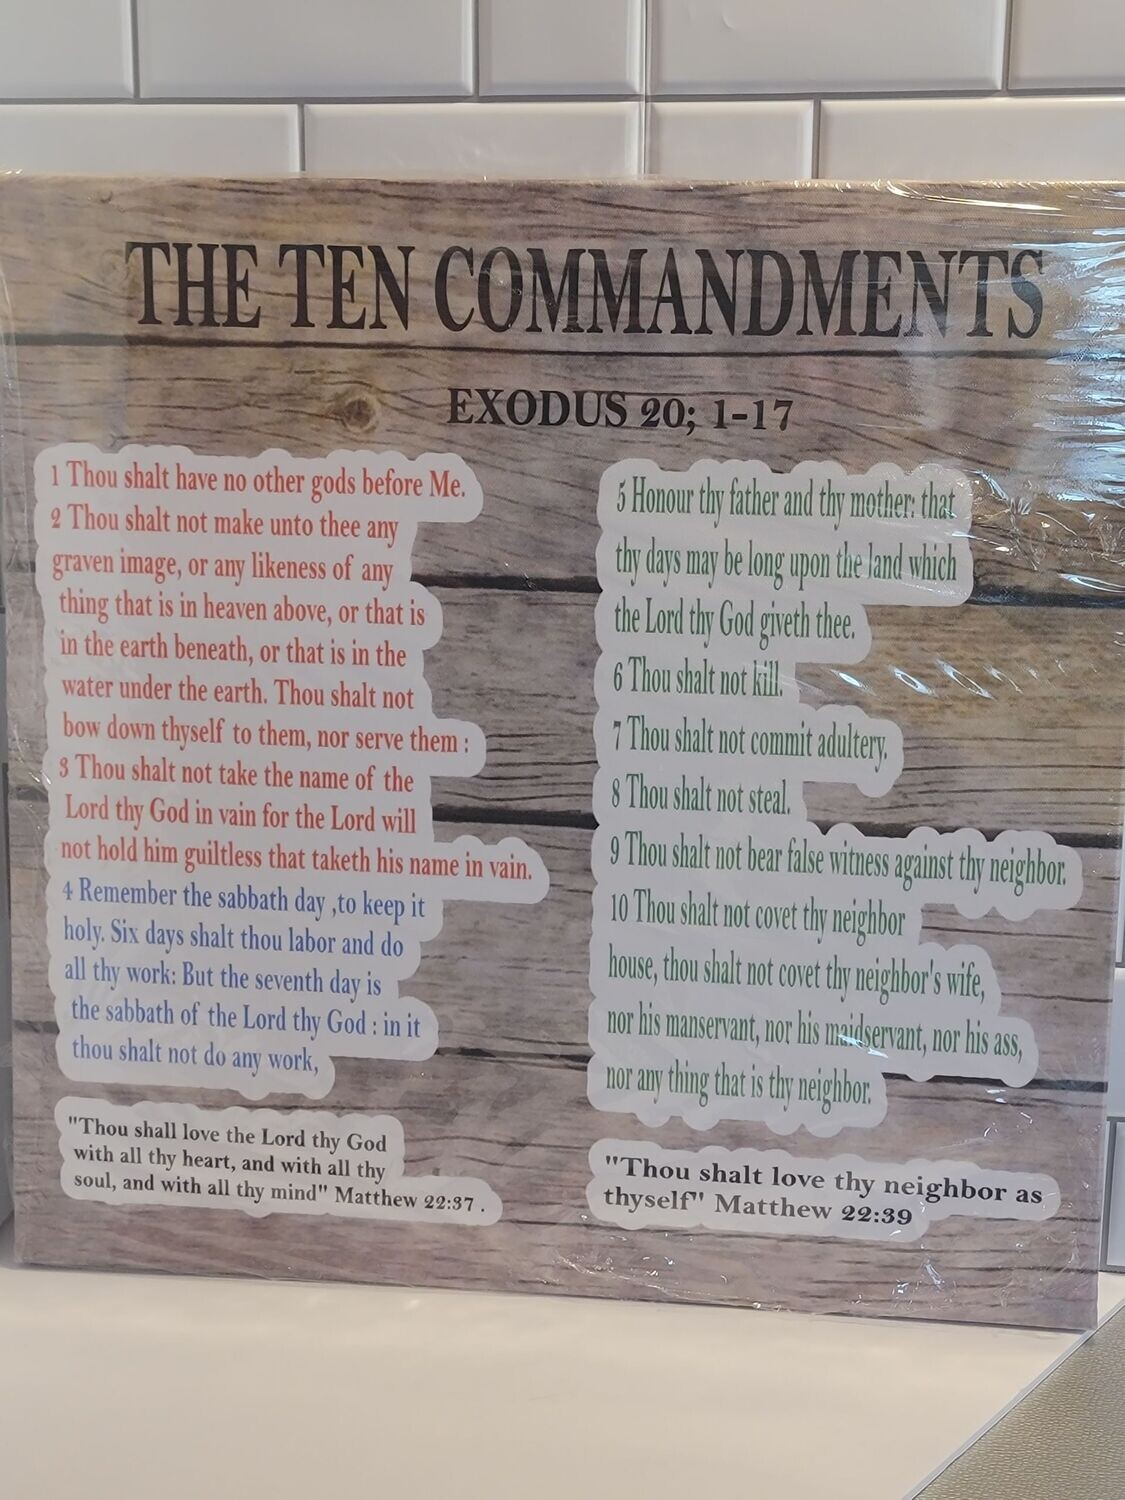 THE TEN COMMANDMENTS
EXODUS 20; 1-17
1 Thou shalt have no other gods before Me.
2 Thou shalt not make unto thee any
graven image, or any likeness of any
thing that is in heaven above, or that is
in the earth beneath, or that is in the
water under the earth. Thou shalt not
bow down thyself to them, nor serve them :
3 Thou shalt not take the name of the
Lord thy God in vain for the Lord will
not hold him guiltless that taketh his name in vain.
4 Remember the sabbath day ,to keep it
holy. Six days shalt thou labor and do
all thy work: But the seventh day is
the sabbath of the Lord thy God : in it
thou shalt not do any work,
"Thou shall love the Lord thy God
with all thy heart, and with all thy
soul, and with all thy mind" Matthew 22:37 .
5 Honour thy father and thy mother: that
thy days may be long upon the land which
the Lord thy God giveth thee.
6 Thou shalt not kill.
7 Thou shalt not commit adultery.
8 Thou shalt not steal.
9 Thou shalt not bear false witness against thy neighbor.
10 Thou shalt not covet thy neighbor
house, thou shalt not covet thy neighbor's wife,
nor his manservant, nor his maidservant, nor his ass,
nor any thing that is thy neighbor.
"Thou shalt love thy neighbor as
thyself" Matthew 22:39